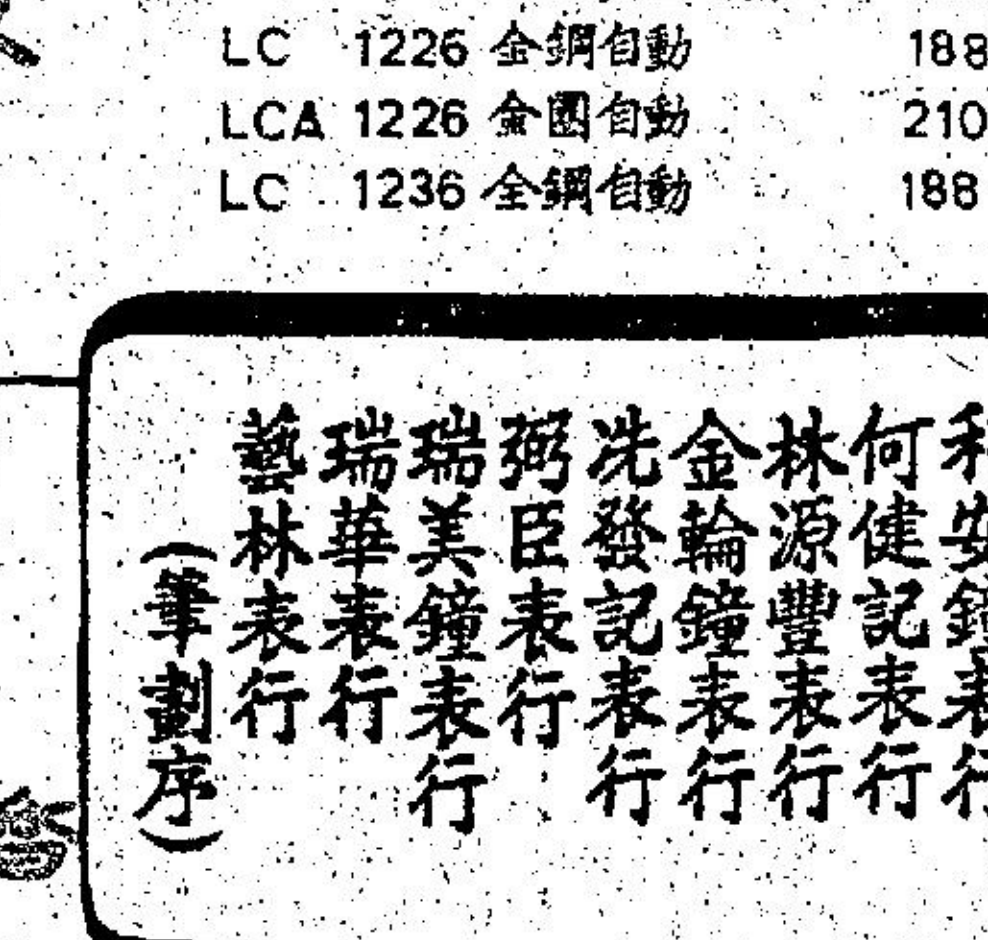 LC 1226 全鋼自動 188
LCA 1226 金圈自動 210
LC 1236 全鋼自動 188
利安鐘表行
何健記表行
林源豐表行
金輪鐘表行
冼發記表行
弼臣表行
瑞美鐘表行
瑞華表行
藝林表行
(筆劃序)